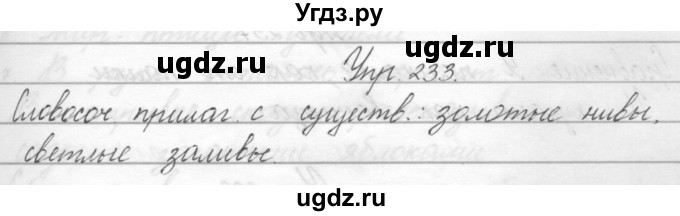 Угдз.ру
ugdz.ru ugdz.ru
Упр 233.
Словосоч прилаг с существ.: золотые нивы,
светлые заливы.
ugdz.ru ugdz.ru